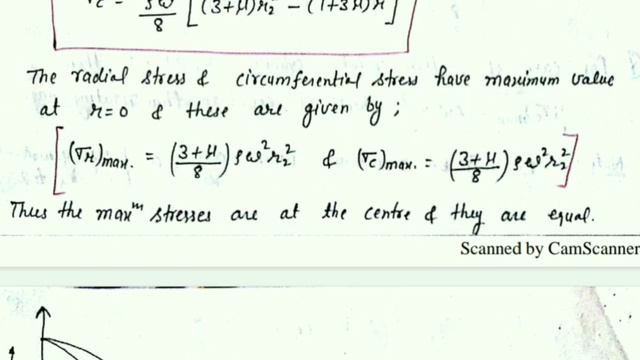 σc = ρω²/8 [(3+μ)r₂² − (1+3μ)r²]
The radial stress & circumferential stress have maximum value
at r=0 & these are given by;
[(σr)max. = (3+μ/8) ρω²r₂² & (σc)max. = (3+μ/8) ρω²r₂²]
Thus the maxᵐ stresses are at the centre & they are equal.
Scanned by CamScanner